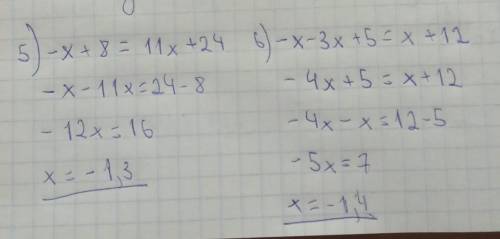 5) -x+8=11x+24
-x-11x=24-8
-12x=16
x=-1,3
6) -x-3x+5=x+12
-4x+5=x+12
-4x-x=12-5
-5x=7
x=-1,4